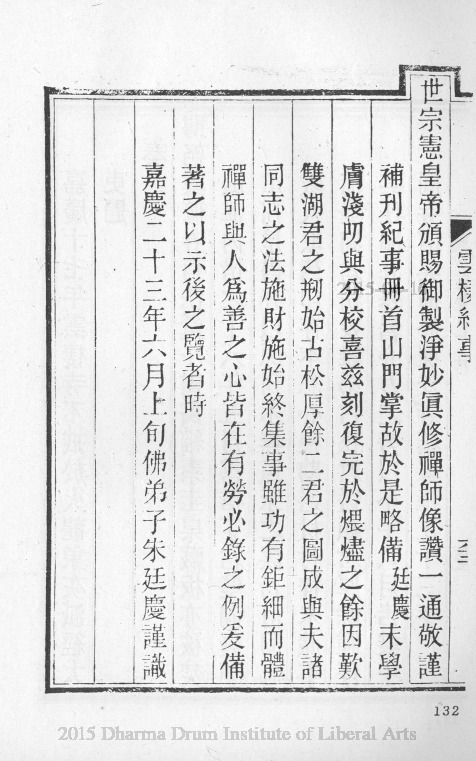 世宗憲皇帝頒賜御製淨妙眞修禪師像讚一通敬謹
補刊紀事冊首山門掌故於是略備廷慶末學
膚淺叨與分校喜茲刻復完於煨燼之餘因歎
雙湖君之剏始古松厚餘二君之圖成與夫諸
同志之法施財施始終集事雖功有鉅細而體
禪師與人爲善之心皆在有勞必錄之例爰備
著之以示後之覽者時
嘉慶二十三年六月上旬佛弟子朱廷慶謹識
雲棲紀事
132
2015 Dharma Drum Institute of Liberal Arts